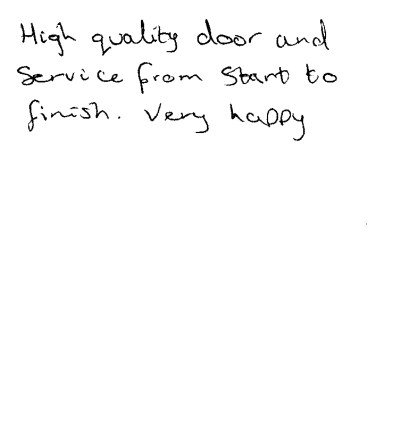 High quality door and
Service from Start to
finish. Very happy